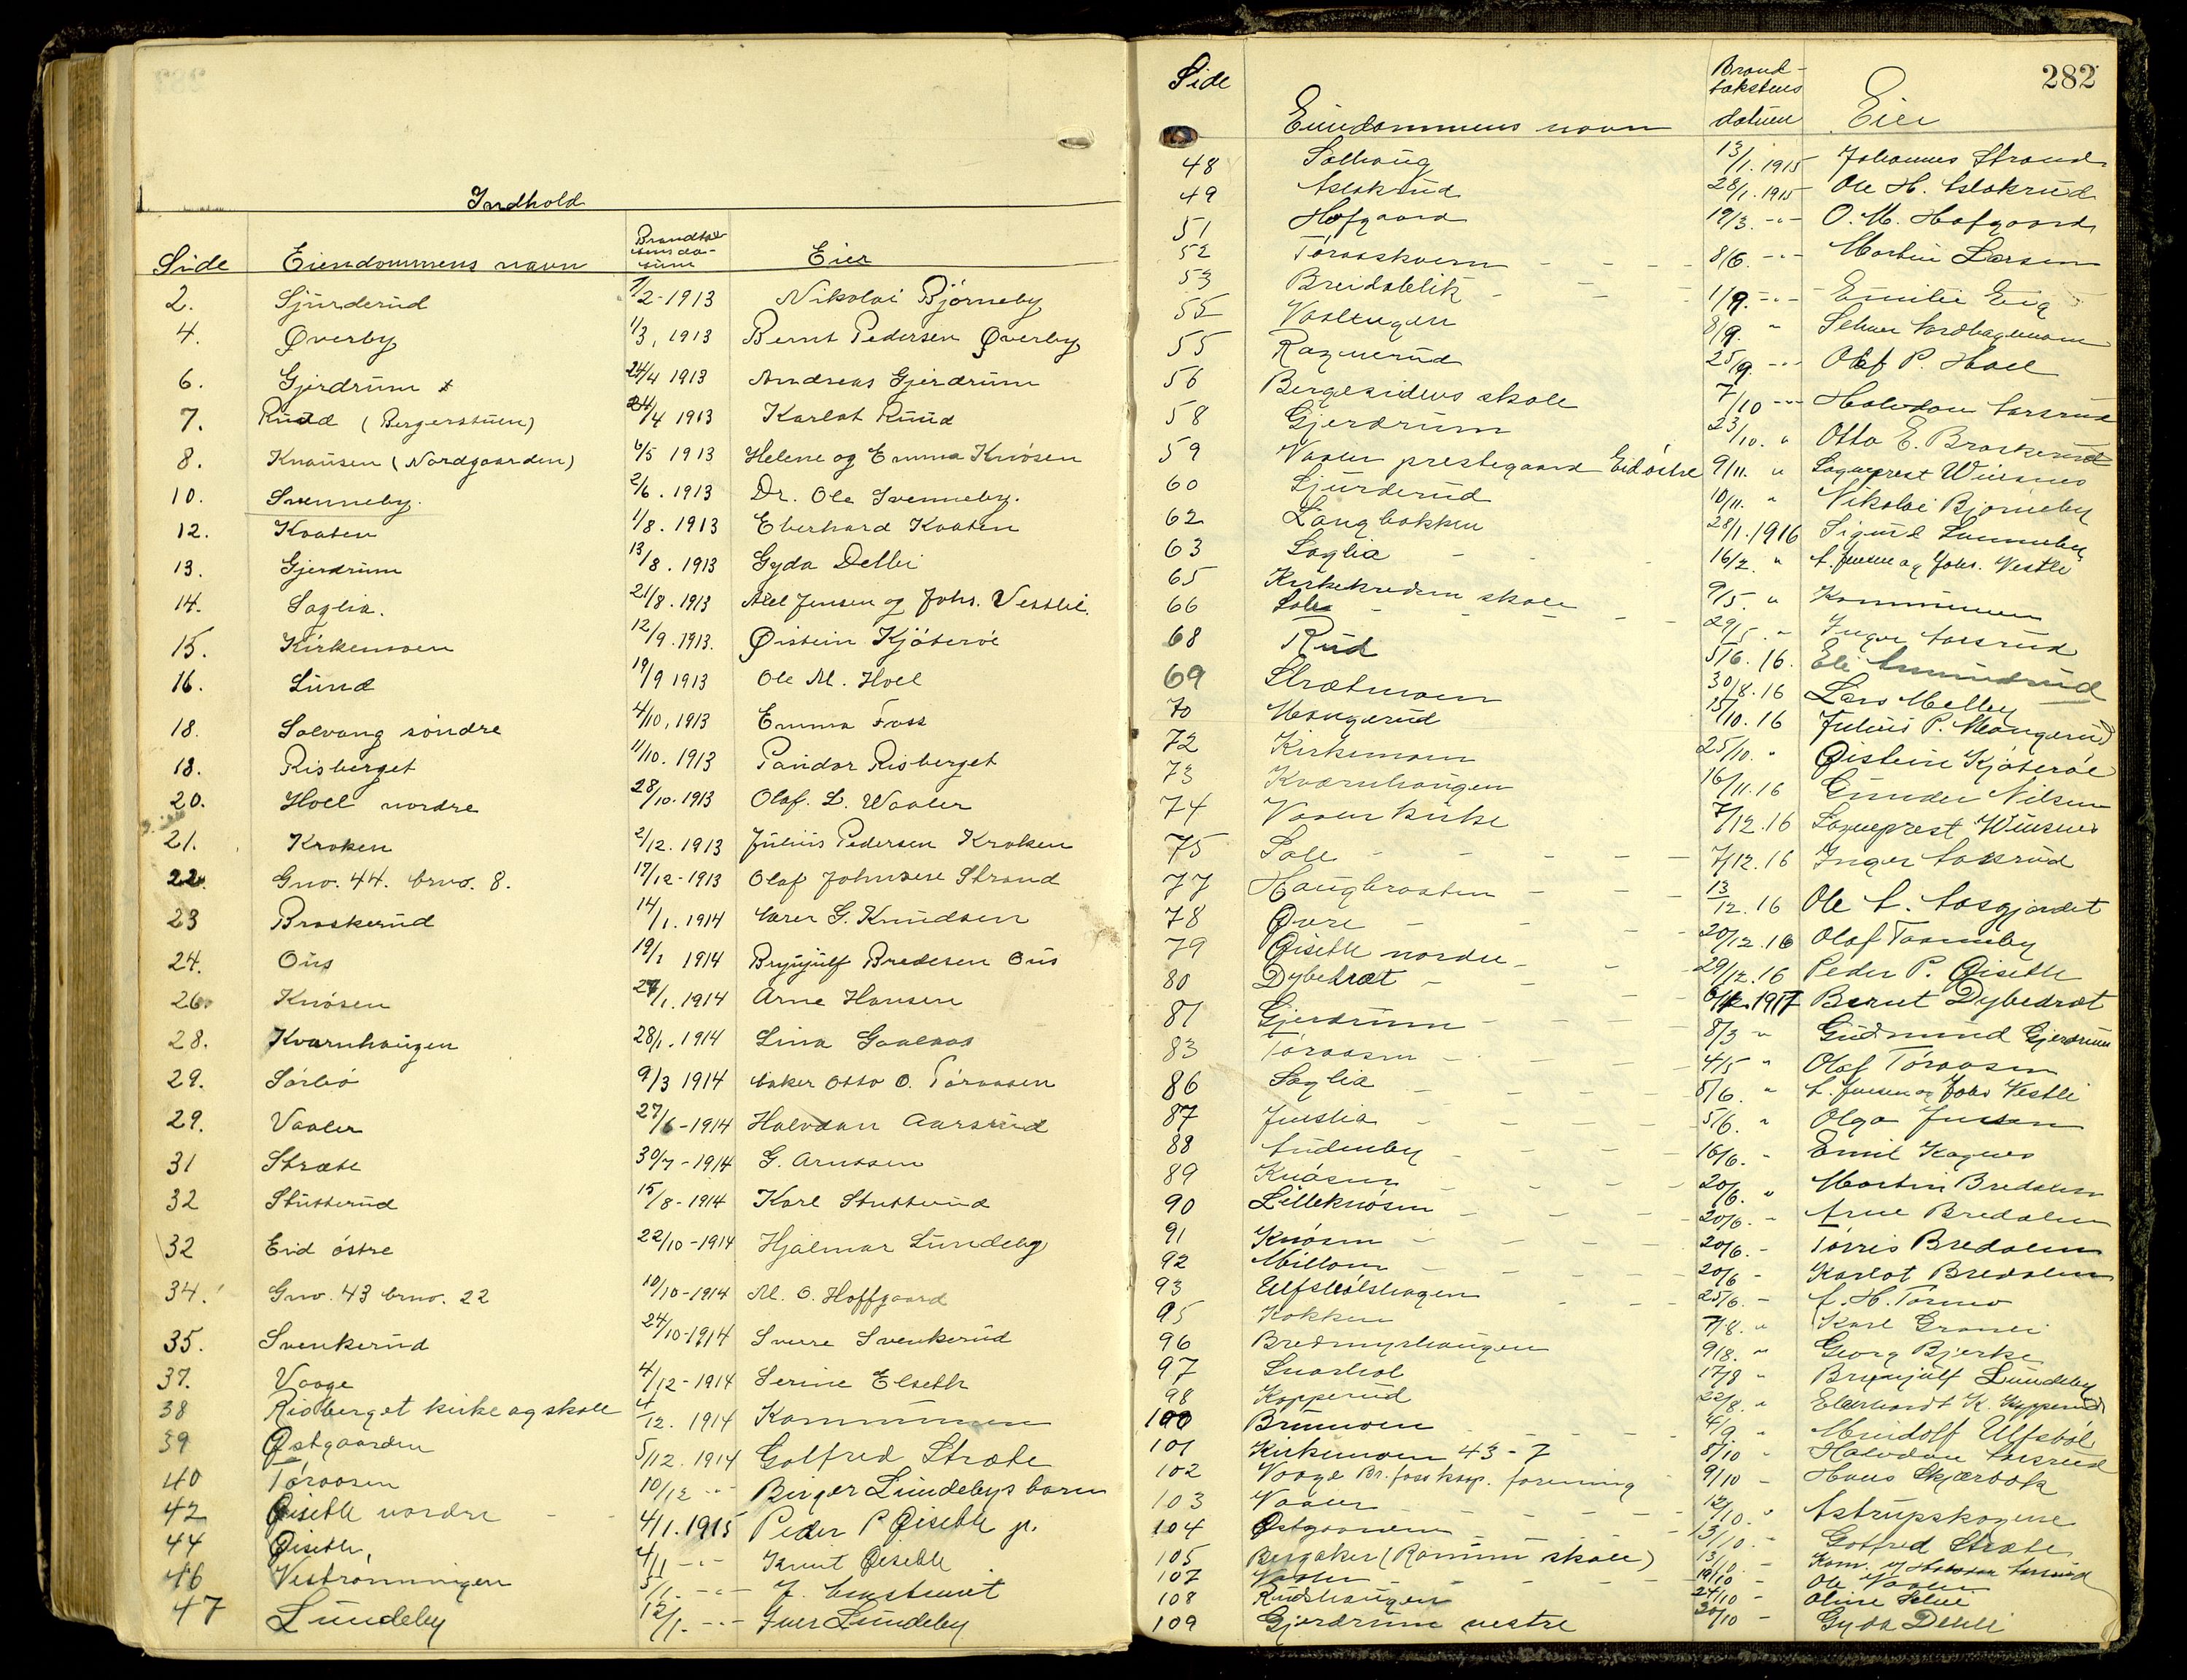 Indhold
Side Eiendommens navn Brandtakstens datum Eier
2. Sjurderud 7/2-1913 Nikolai Bjørneby
4. Øverby 1/3, 1913 Bernt Pedersen Øverby
6. Gjerdrum 24/4 1913 Andreas Gjerdrum
7. Ruud (Bergerstuen) 24/4 1913 Karlot Ruud
8. Knausen (Nordgaarden) 6/5 1913 Helene og Emma Knøsen
10. Svenneby. 2/6. 1913 Dr. Ole Svenneby.
12. Kvaten 1/8. 1913 Eberhard Kvaten
13. Gjerdrum 13/8. 1913 Gyda Delbi
14. Saglia. 21/8. 1913 Axel Jensen og Johs. Vestbi.
15. Kirkemoen 12/9. 1913. Øistein Kjøterøe
16. Lund 19/9 1913 Ole M. Hoel
18. Solvang søndre 4/10, 1913 Emma Foss
18. Risberget 11/10. 1913 Pandor Risberget
20. Hoel nordre 28/10. 1913 Olaf. L. Waaler
21. Kroken 2/12. 1913 Julius Pedersen Kroken
22. Gno. 44. brno. 8. 17/12-1913 Olaf Johnsen Strand
23 Braskerud 14/1. 1914 Karen G. Knudsen
24. Ous 19/1 1914 Brynjulf Bredesen Ous
26. Knøsen 27/1. 1914 Arne Hansen
28. Kvarnhaugen 28/1. 1914 Lina Gaalaas
29. Sørbø 9/3 1914 Otto O. Tøraasen
29. Vaaler 27/6-1914 Halvdan Aarsrud
31 Stræte 30/7-1914 G. Arntsen
32 Stutterud 15/8-1914 Karl Stutterud
32 Eid østre 22/10-1914 Hjalmar Lundeby
34. Gno. 43 brno. 22 10/10-1914 M. O. Hoffgaard
35. Svenkerud 24/10-1914 Sverre Svenkerud
37. Vaage 4/12-1914 Serine Elseth
38 Risberget kirke og skole 4/12. 1914 Kommunen
39 Østgaarden 5/12. 1914 Golfred Stræte
40 Tøraasen 10/12 -"- Birger Lundebys barn
42 Øiseth nordre 4/1. 1915 Peder P Øiseth jr.
44 Øiseth, 4/1 -"- Knut Øiseth
46 Vestrønningen 5/1. -"- J.
47 Lundeby 12/1. -"- Iver Lundeby
282
Side Eiendommens navn Brandtakstens datum Eier
48 Solhaug 13/1. 1915 Johannes Strand
49 Aslakrud 28/1. 1915 Ole H. Aslakrud
51 Hofgaard 19/3. -"- O. M. Hofgaard
52 Tøraaskvern 8/6. -"- Martin Larsen
53 Breidablik 1/9. -"- Emilie Eng
55 Vaalengen 8/9. " Selmer
55 Raznerud 25/9. -"- Olaf P. Hoel
56 Bergesidens skole 7/10 -"- Halvdan Aarsrud
58 Gjerdrum 23/10. " Otto E. Braskerud
59 Vaaler prestegaard Eid østre 9/11. " Sogneprest Winsnes
60 Sjurderud 10/11. " Nikolai Bjørneby
62 Langbakken 28/1. 1916 Sigurd Svenneby
63 Saglia 16/2. " A. Jensen og Johs. Vestli
65 Kirkekredsen skole 9/5. " Kommunen
66 Sole 29/5. " Inger Aarsrud
68 Rud 5/6. 16. Eli Amundrud
69 Strætmoen 30/8. 16 Lars Melby
70 Mangerud 15/10. 16 Julius P. Mangerud
72 Kirkemoen 25/10. " Øistein Kjøterøe
73 Kvarnhaugen 16/11. 16 Gunder Nilsen
74 Vaaler kirke 7/12. 16 Sogneprest Winsnes
75 Sole 7/12. 16 Inger Aarsrud
77 Haugbraaten 13/12. 16 Ole A. Aasgjærdet
78 Øvre 20/12. 16 Olaf Taarneby
79 Øiseth nordre 29/12. 16 Peder P. Øiseth
80 Dybedræt 1917 Bernt Dybedræt
81 Gjerdrum 8/3 " Gudmund Gjerdrum
83 Tøraasen 4/5 " Olaf Tøraasen
86 Saglia 5/6. " A. Jensen og Johs Vestli
87 Juelia 5/6. " Olga Jensen
88 Andersby 16/6. " Emil Kagnes
89 Knøsen 20/6. " Martin Bredalen
90 Lilleknøsen 20/6. " Arne Bredalen
91 Knøsen 20/6. - Tørris Bredalen
92 Millom 20/6 - Karlot Bredalen
93 Ulfsbølshagen 25/6. - A. H. Tørmo
95 Bakken 7/8. " Karl Granli
96 Bredmyrhaugen 9/8. " Georg Bjerke
97 Snarhol 17/8 " Brynjulf Lundeby
98 Kopperud 22/8. " Eberhardt K. Kopperud
100 Brumoen 4/9. " Mindolf Ulfsbøl
101 Kirkemoen 43-7 8/10 " Halvdan Aarsrud
102 Vaage Br. foss koop. forening 9/10 - Hans Skjærbæk
103 Vaaler 12/10. " Astrupskogene
104 Østgaarden 13/10. - Gotfred Stræte
105 Bergaker (Ramun skole) 13/10 - Kom. v/ Halvdan Aarsrud
107 Vaaler 19/10 - Ole Vaaler
108 Rudshaugen 24/10 - Oline
109 Gjerdrum vestre 30/10 - Gyda Dehli